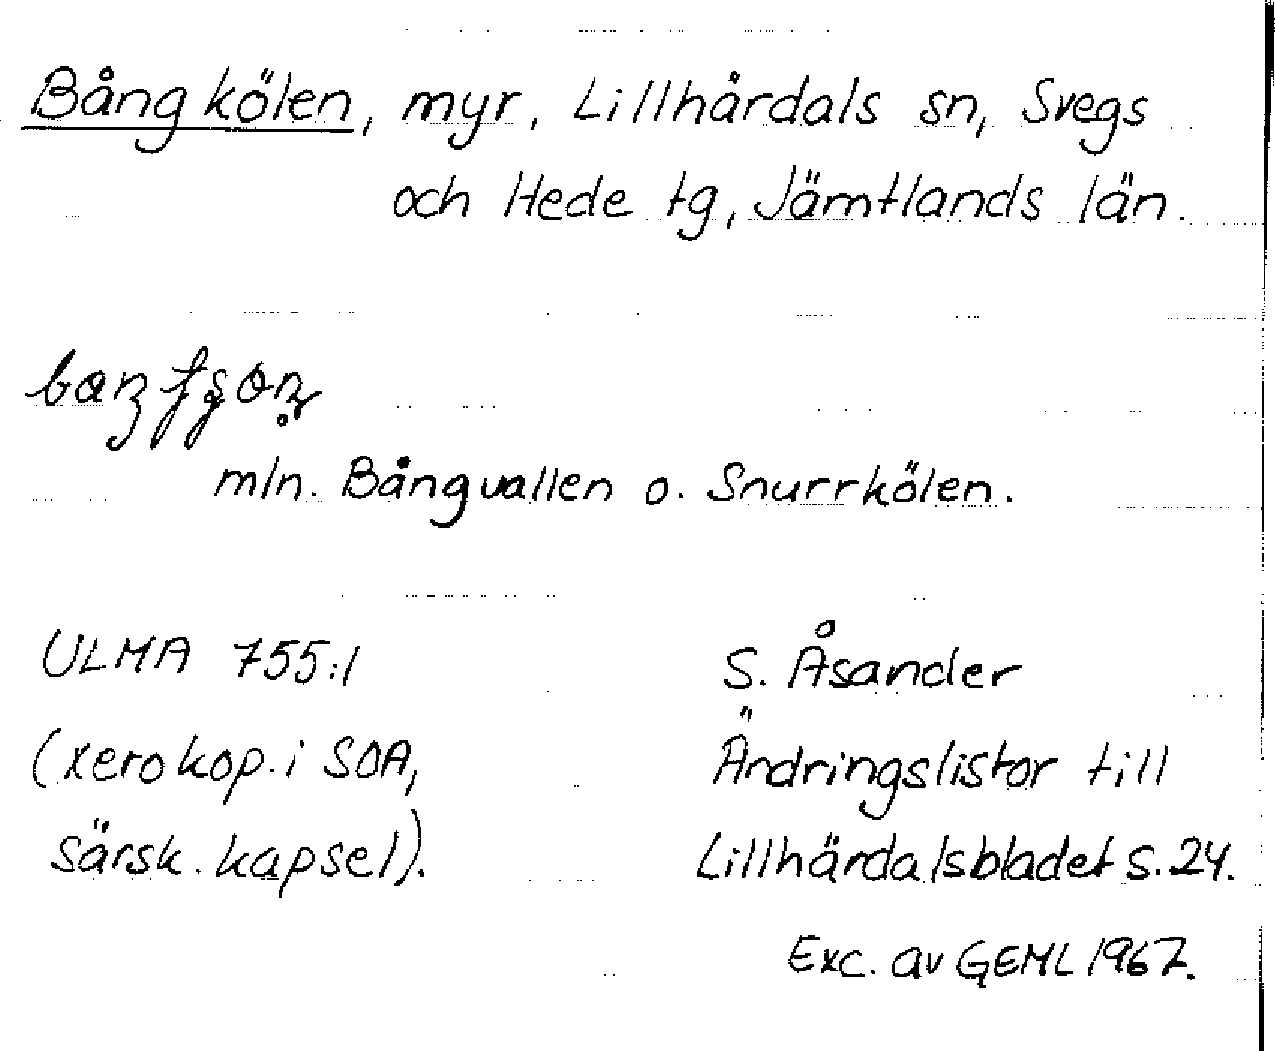 Bångkölen, myr, Lillhårdals sn, Svegs
och Hede tg, Jämtlands län.
mln. Bångvallen o. Snurrkölen.
ULMA 755:1
(xerokop. i SOA,
särsk. kapsel).
S. Åsander
Ändringslistor till
Lillhärdalsbladet s. 24.
Exc. av GEML 1967.